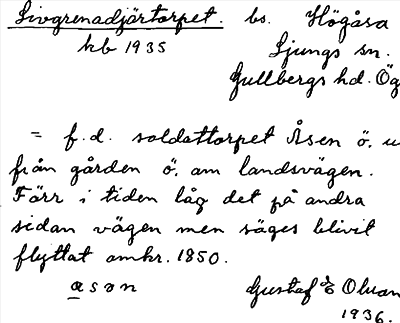 Livgrenadjärtorpet. bs. Högåsa
kb 1935 Ljungs sn.
Gullbergs hd. Ög
= f.d. soldattorpet Åsen ö. u
från gården ö. om landsvägen.
Förr i tiden låg det på andra
sidan vägen men säges blivit
flyttat omkr. 1850.
åsən Gustaf E Olsson
1936.